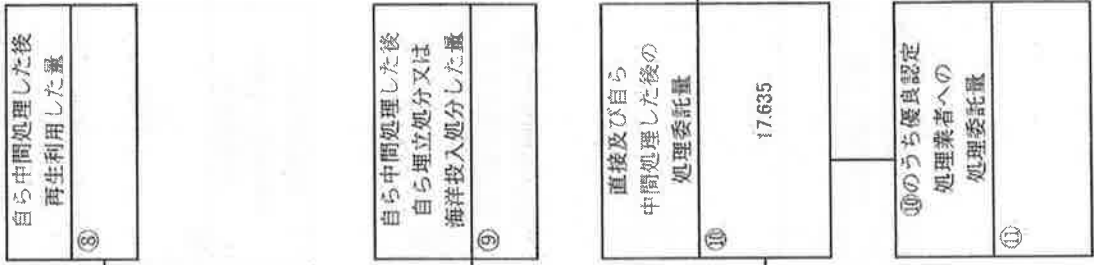 自ら中間処理した後
再生利用した量
⑧
自ら中間処理した後
自ら埋立処分又は
海洋投入処分した量
⑨
直接及び自ら
中間処理した後の
処理委託量
⑩
17.635
⑩のうち優良認定
処理業者への
処理委託量
⑪